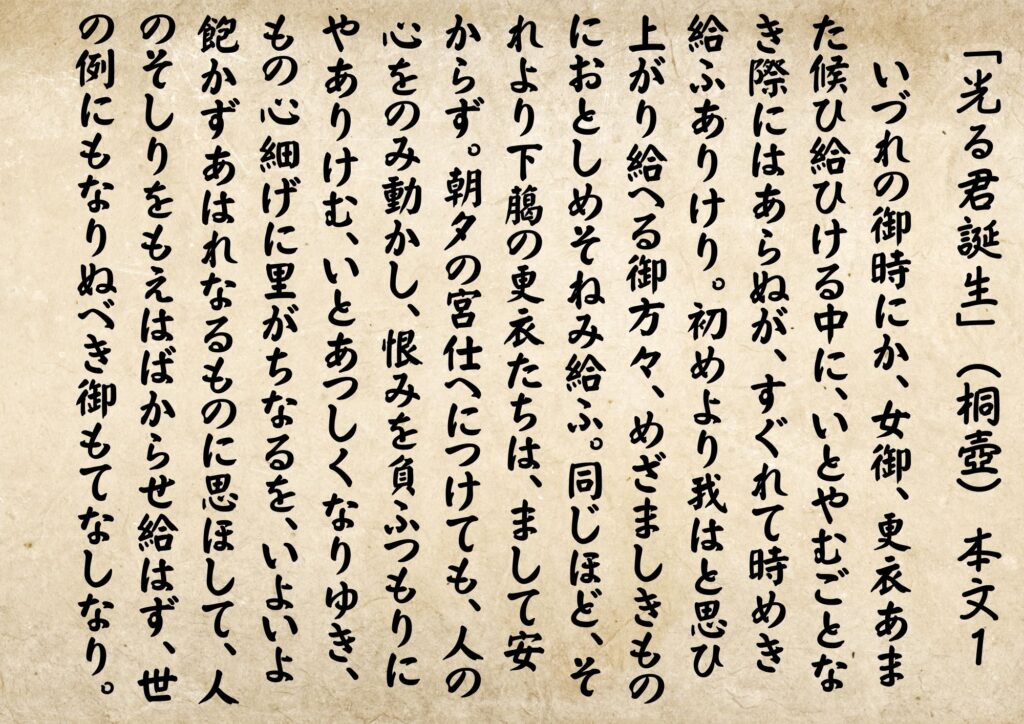 「光る君誕生」（桐壺） 本文1
いづれの御時にか、女御、更衣あま
た候ひ給ひける中に、いとやむごとな
き際にはあらぬが、すぐれて時めき
給ふありけり。初めより我はと思ひ
上がり給へる御方々、めざましきもの
におとしめそねみ給ふ。同じほど、そ
れより下臈の更衣たちは、まして安
からず。朝夕の宮仕へにつけても、人の
心をのみ動かし、恨みを負ふつもりに
やありけむ、いとあつしくなりゆき、
もの心細げに里がちなるを、いよいよ
飽かずあはれなるものに思ほして、人
のそしりをもえはばからせ給はず、世
の例にもなりぬべき御もてなしなり。